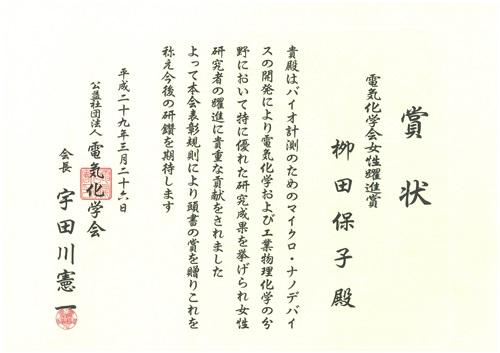 賞状
電気化学会女性躍進賞
柳田保子殿
貴殿はバイオ計測のためのマイクロ・ナノデバイ
スの開発により電気化学および工業物理化学の分
野において特に優れた研究成果を挙げられ女性
研究者の躍進に貴重な貢献をされました
よって本会表彰規則により頭書の賞を贈りこれを
称え今後の研鑽を期待します
平成二十九年三月二十六日
公益社団法人 電気化学会
会長 宇田川憲一